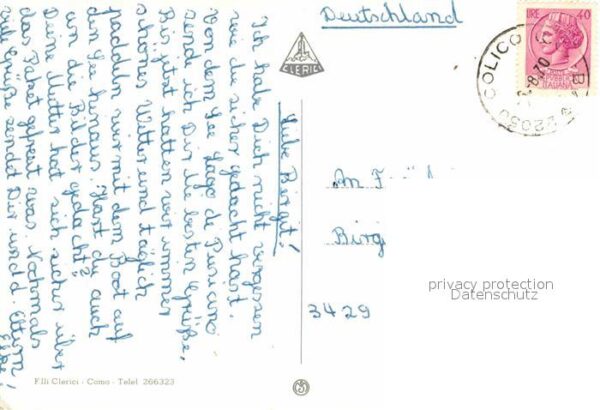 Deutschland
LIRE 40
COLICO
22050
8.70
CLERICI
Liebe Birgit!
Ich habe Dich nicht vergessen
wie du sicher gedacht hast.
Von dem See Lago de Pusiano
sende ich Dir die besten Grüße,
Bis jetzt hatten wir immer
schönes Wetter und täglich
paddeln wir mit dem Boot auf
den See hinaus. Hast du auch
an die Bilder gedacht?
Deine Mutter hat sich sicher über
das Paket gefreut was. Nochmals
viele Grüße sendet Dir und d. Eltern
Elke!
An F
Birg
3429
privacy protection
Datenschutz
F.lli Clerici - Como - Telef. 266323